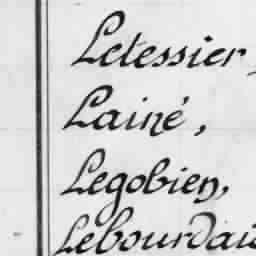 Letessier,
Lainé,
Legobien,
Lebourdais